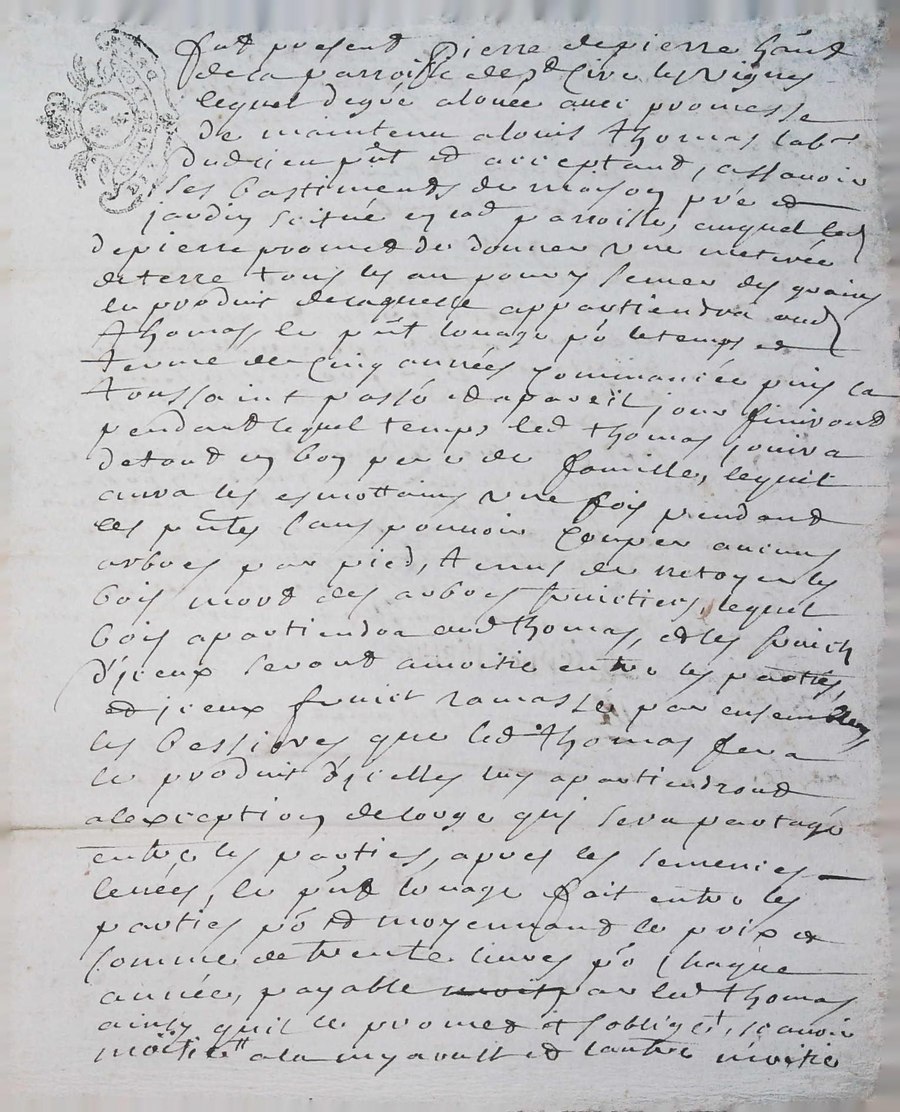 fut present Pierre depierre
de la parroisse de st Cire les Vignes
lequel degré a louée avec promesse
de maintenu a louis thomas labr
dudit lieu pnt et acceptand, assavoir
ses bastiments de maison pré et
jardin scitué en lad parroisse, auquel led
depierre promet de donner une meterée
de terre tous les an pour y semer des grains
le produit de laquelle appartiendra aud
thomas, le pnt louage po le temps et
terme de cinq années commancée puis la
toussaint passé et a pareil jour finiront
pendant lequel temps led thomas jouira
de tout en bon pere de famille, lequel
aura les une fois pendant
les pntes sans pouvoir couper aucuns
arbres par pied, tenus de netoyer les
bois mord des arbres fruictiers, lequel
bois apartiendra aud thomas, et les fruicts
d'jceux seront a moitié entre les parties,
et jceux fruict ramassé par ensemble
les que led thomas fera
le produit d'jcelles luy apartiendront
a lexception de lorge qui sera partagé
entre les parties, apres les semences
levées, le pnt louage fait entre les
parties po et moyennand le prix et
somme de trente livres po chaque
année, payable par led thomas
ainsy quil le promet et soblige, scavoir
moitié a la my aoust et lautre moitié